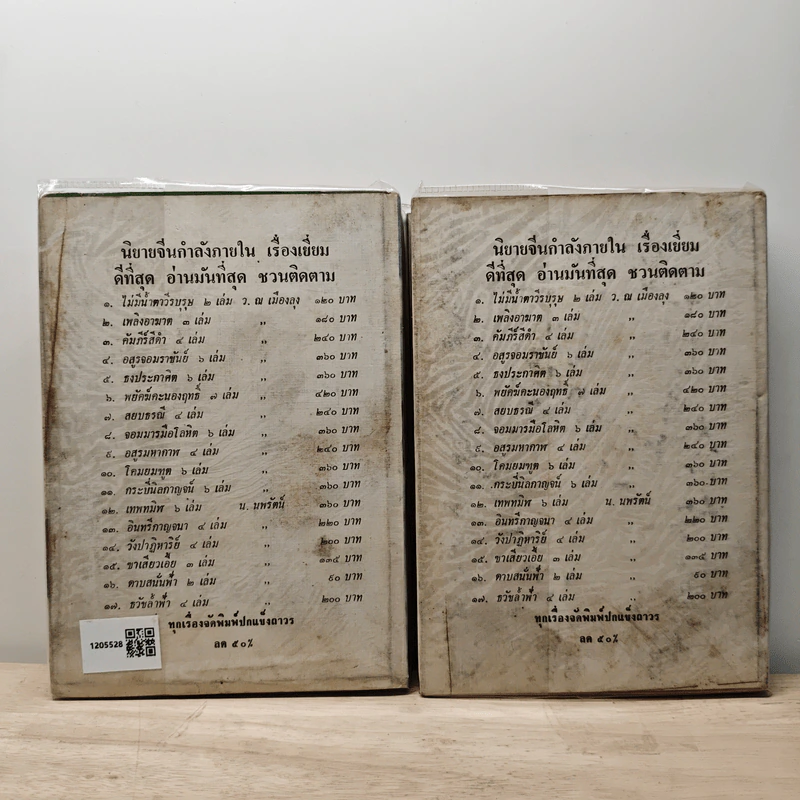 นิยายจีนกำลังภายใน เรื่องเยี่ยม
ดีที่สุด อ่านมันที่สุด ชวนติดตาม
๑. ไม่มีน้ำตาวีรบุรุษ ๒ เล่ม ว. ณ เมืองลุง ๑๒๐ บาท
๒. เพลิงอาฆาต ๓ เล่ม ,, ๑๘๐ บาท
๓. คัมภีร์สีดำ ๔ เล่ม ,, ๒๔๐ บาท
๔. อสูรจอมราชันย์ ๖ เล่ม ,, ๓๖๐ บาท
๕. ธงประกาศิต ๖ เล่ม ,, ๓๖๐ บาท
๖. พยัคฆ์คะนองฤทธิ์ ๗ เล่ม ,, ๔๒๐ บาท
๗. สยบธรณี ๔ เล่ม ,, ๒๔๐ บาท
๘. จอมมารมือโลหิต ๖ เล่ม ,, ๓๖๐ บาท
๙. อสูรมหากาฬ ๔ เล่ม ,, ๒๔๐ บาท
๑๐. โคมยมทูต ๖ เล่ม ,, ๓๖๐ บาท
๑๑. กระบี่นิลกาญจน์ ๖ เล่ม ,, ๓๖๐ บาท
๑๒. เทพทมิฬ ๖ เล่ม น. นพรัตน์ ๓๖๐ บาท
๑๓. อินทรีกาญจนา ๔ เล่ม ,, ๒๒๐ บาท
๑๔. วังปาฏิหาริย์ ๔ เล่ม ,, ๒๐๐ บาท
๑๕. ขาเสียวเอี้ย ๓ เล่ม ,, ๑๓๕ บาท
๑๖. ดาบสนั่นฟ้า ๒ เล่ม ,, ๙๐ บาท
๑๗. ธวัชล้ำฟ้า ๔ เล่ม ,, ๒๐๐ บาท
ทุกเรื่องจัดพิมพ์ปกแข็งถาวร
ลด ๕๐%
1205528
นิยายจีนกำลังภายใน เรื่องเยี่ยม
ดีที่สุด อ่านมันที่สุด ชวนติดตาม
๑. ไม่มีน้ำตาวีรบุรุษ ๒ เล่ม ว. ณ เมืองลุง ๑๒๐ บาท
๒. เพลิงอาฆาต ๓ เล่ม ,, ๑๘๐ บาท
๓. คัมภีร์สีดำ ๔ เล่ม ,, ๒๔๐ บาท
๔. อสูรจอมราชันย์ ๖ เล่ม ,, ๓๖๐ บาท
๕. ธงประกาศิต ๖ เล่ม ,, ๓๖๐ บาท
๖. พยัคฆ์คะนองฤทธิ์ ๗ เล่ม ,, ๔๒๐ บาท
๗. สยบธรณี ๔ เล่ม ,, ๒๔๐ บาท
๘. จอมมารมือโลหิต ๖ เล่ม ,, ๓๖๐ บาท
๙. อสูรมหากาฬ ๔ เล่ม ,, ๒๔๐ บาท
๑๐. โคมยมทูต ๖ เล่ม ,, ๓๖๐ บาท
๑๑. กระบี่นิลกาญจน์ ๖ เล่ม ,, ๓๖๐ บาท
๑๒. เทพทมิฬ ๖ เล่ม น. นพรัตน์ ๓๖๐ บาท
๑๓. อินทรีกาญจนา ๔ เล่ม ,, ๒๒๐ บาท
๑๔. วังปาฏิหาริย์ ๔ เล่ม ,, ๒๐๐ บาท
๑๕. ขาเสียวเอี้ย ๓ เล่ม ,, ๑๓๕ บาท
๑๖. ดาบสนั่นฟ้า ๒ เล่ม ,, ๙๐ บาท
๑๗. ธวัชล้ำฟ้า ๔ เล่ม ,, ๒๐๐ บาท
ทุกเรื่องจัดพิมพ์ปกแข็งถาวร
ลด ๕๐%